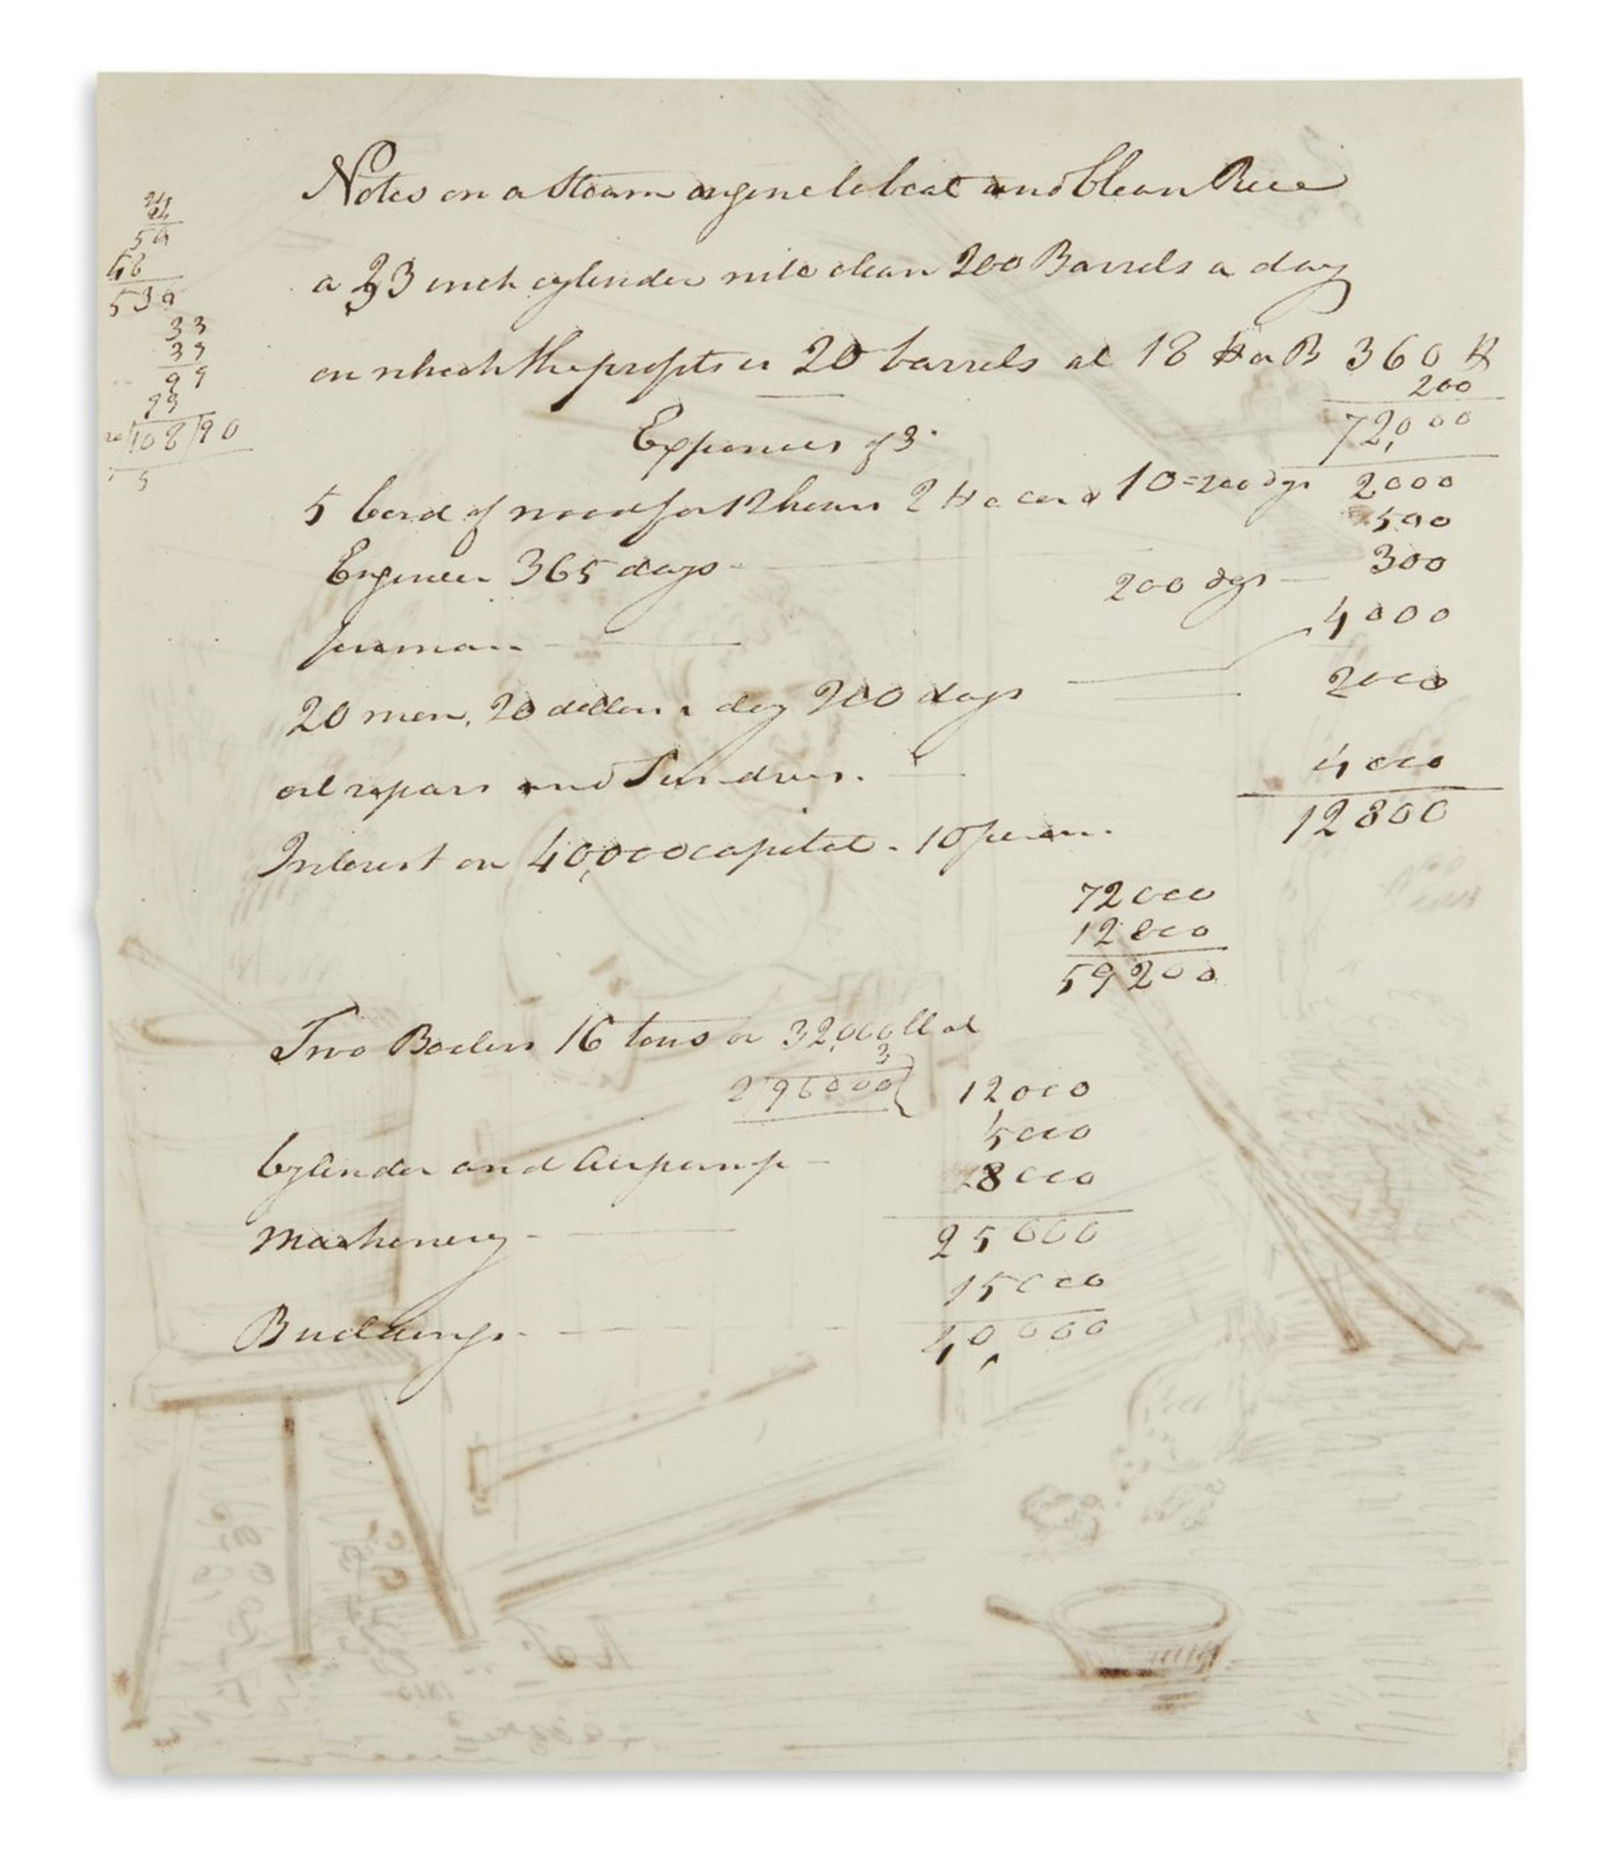 Notes on a Steam engine to beat and Clean Rice
a 33 inch cylinder will clean 200 Barrels a day
on which the profits is 20 barrels at 18 $ a B 360 $
200
72,000
Expences of 3
5 Cord of wood for 12 hours 2 $ a cord 10 = 200 dys 2000
500
Engineer 365 days
200 dys 300
fireman
4000
20 men, 20 dollars a day 200 days
2000
oil repairs and Sundries.
4000
Interest on 40,000 capital - 10 per
12800
72000
12800
59200
Two Boilers 16 tons or 32,000 lb at
3
2 96000 12000
5000
Cylinder and Air pump
8000
Machinery
25000
15000
Buildings
40,000
33
33
99
99
108|90